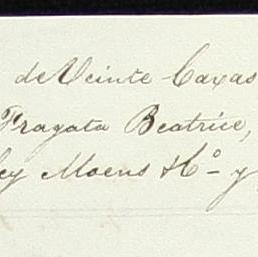 de Veinte Caxas
Fragata Beatrice,
ley Moens Hº y